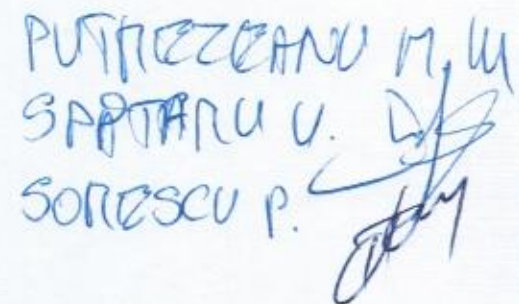 PUTREZEANU M.
SPĂTARU V.
SORESCU P.